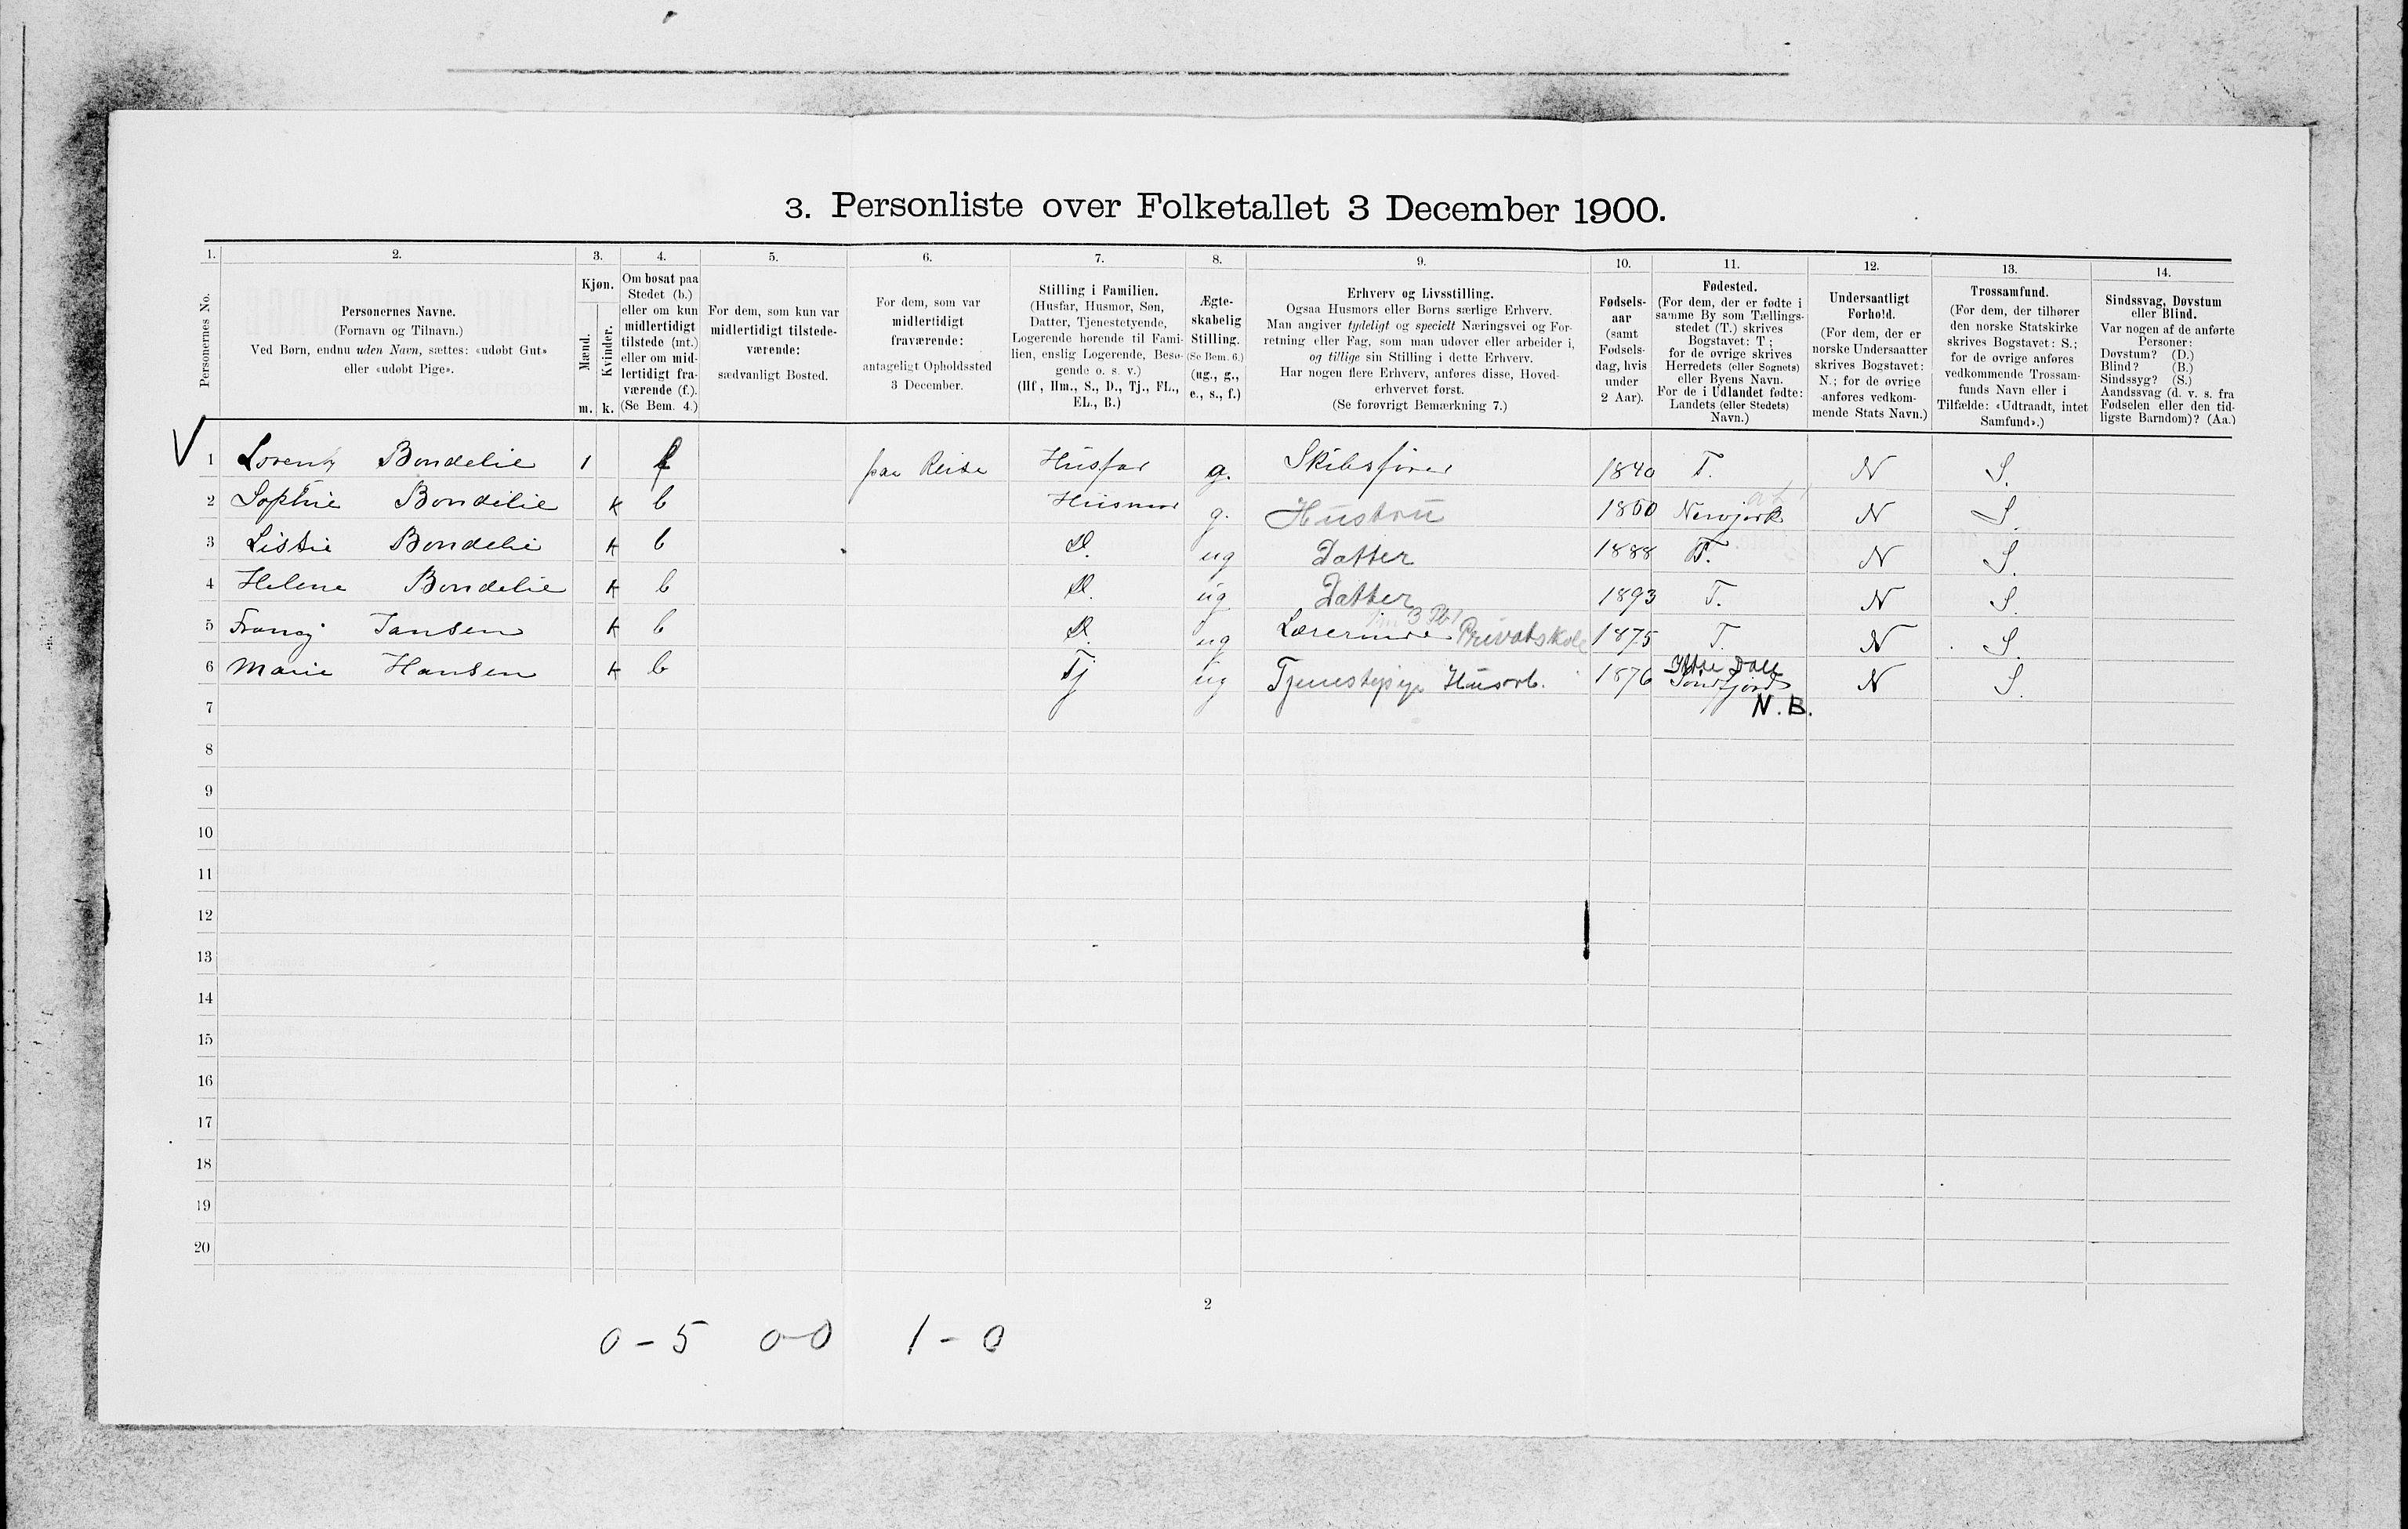 3. Personliste over Folketallet 3 December 1900.
1. 2. 3. 4. 5. 6. 7. 8. 9. 10. 11. 12. 13. 14.
Personernes No.
Personernes Navne.
(Fornavn og Tilnavn.)
Ved Børn, endnu uden Navn, sættes: «udøbt Gut»
eller «udøbt Pige».
Kjøn.
Mænd.
Kvinder.
m. k.
Om bosat paa
Stedet (b.)
eller om kun
midlertidigt
tilstede (mt.)
eller om mid-
lertidigt fra-
værende (f.).
(Se Bem. 4.)
For dem, som kun var
midlertidigt tilstede-
værende:
sædvanligt Bosted.
For dem, som var
midlertidigt
fraværende:
antageligt Opholdssted
3 December.
Stilling i Familien.
(Husfar, Husmor, Søn,
Datter, Tjenestetyende,
Logerende hørende til Fami-
lien, enslig Logerende, Besø-
gende o. s. v.)
(Hf., Hm., S., D., Tj., FL.,
EL., B.)
Ægte-
skabelig
Stilling.
(Se Bem. 6.)
(ug., g.,
e., s., f.)
Erhverv og Livsstilling.
Ogsaa Husmors eller Børns særlige Erhverv.
Man angiver tydeligt og specielt Næringsvei og For-
retning eller Fag, som man udøver eller arbeider i,
og tillige sin Stilling i dette Erhverv.
Har nogen flere Erhverv, anføres disse, Hoved-
erhvervet først.
(Se forøvrigt Bemærkning 7.)
Fødsels-
aar
(samt
Fødsels-
dag, hvis
under
2 Aar).
Fødested.
(For dem, der er fødte i
samme By som Tællings-
stedet (T.) skrives
Bogstavet: T;
for de øvrige skrives
Herredets (eller Sognets)
eller Byens Navn.
For de i Udlandet fødte:
Landets (eller Stedets)
Navn.)
Undersaatligt
Forhold.
(For dem, der er
norske Undersaatter
skrives Bogstavet:
N.; for de øvrige
anføres vedkom-
mende Stats Navn.)
Trossamfund.
(For dem, der tilhører
den norske Statskirke
skrives Bogstavet: S.;
for de øvrige anføres
vedkommende Trossam-
funds Navn eller i
Tilfælde: «Udtraadt, intet
Samfund».)
Sindssvag, Døvstum
eller Blind.
Var nogen af de anførte
Personer:
Døvstum? (D.)
Blind? (B.)
Sindssyg? (S.)
Aandssvag (d. v. s. fra
Fødselen eller den tid-
ligste Barndom)? (Aa.)
V 1 Lorentz Bondelie 1 f paa Reise Husfar g. Skibsfører 1840 T. N S.
2 Sophie Bondelie k b Husmor g. Hustru 1860 Newjork N S.
3 Lissie Bondelie k b D. ug Datter 1888 T. N S.
4 Helene Bondelie k b D. ug Datter 1893 T. N S.
5 Jansen k b D. ug Lærerinde Privatskole 1875 T. N S.
6 Marie Hansen k b Tj ug Tjenestepige Husarb. 1876 Ytre Dale Søndfjord N S.
7 N.B.
8
9
10
11
12
13
14
15
16
17
18
19
20
2
0-5 0-0 1-0